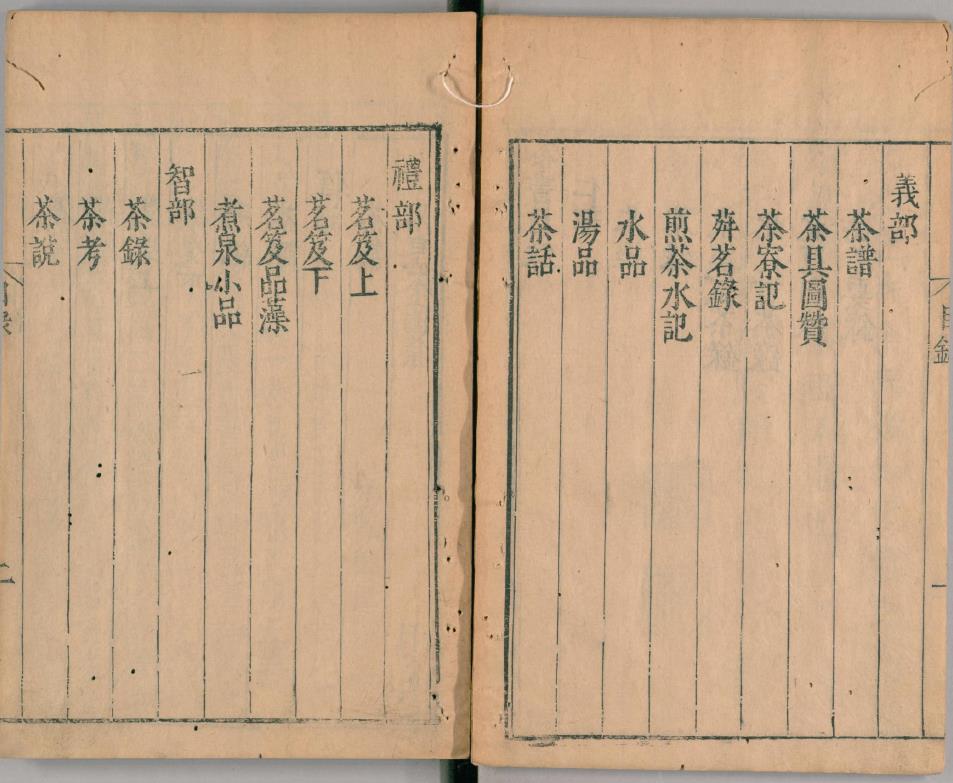 義部
茶譜
茶具圖贊
茶寮記
荈茗錄
煎茶水記
水品
湯品
茶話
目錄
一
禮部
茗笈上
茗笈下
茗笈品藻
煮泉小品
智部
茶錄
茶考
茶說
目錄
二